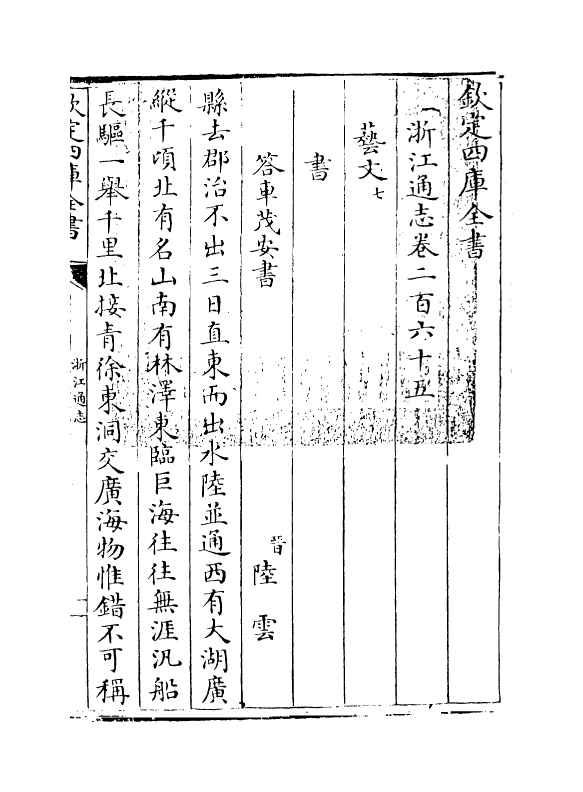 欽定四庫全書
浙江通志卷二百六十五
藝文七
書
答車茂安書
晉陸雲
縣去郡治不出三日直東而出水陸並通西有大湖廣
縱千頃北有名山南有林澤東臨巨海往往無涯汎船
長驅一舉千里北接青徐東洞交廣海物惟錯不可稱
欽定四庫全書
浙江通志